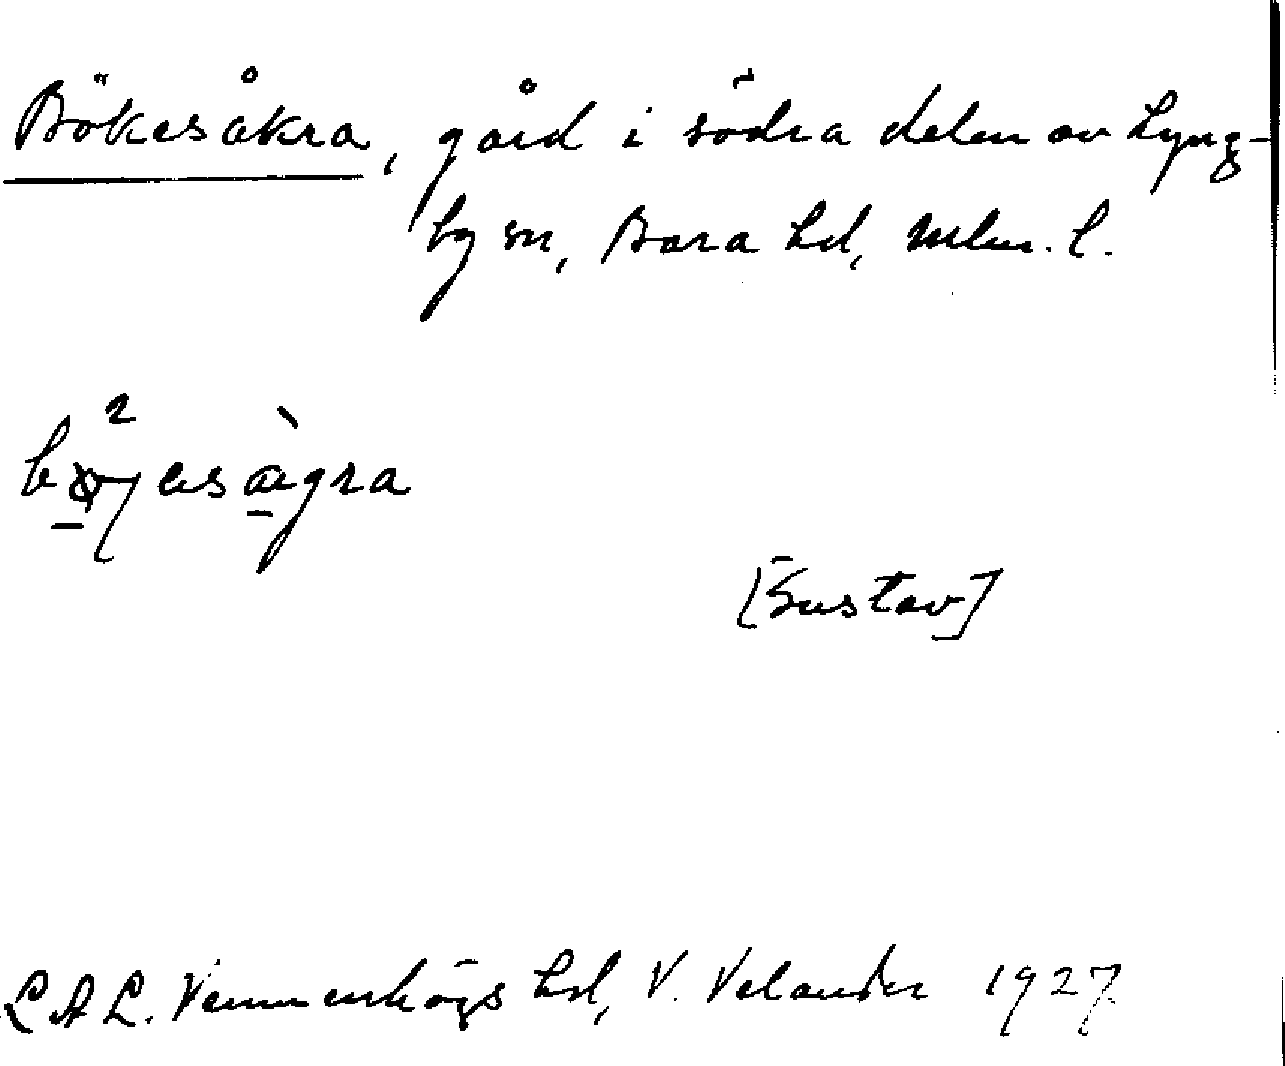 Bökesåkra, gård i södra delen av Lyng-
by sn, Bara hd, Mlm. l.
bø²ɣesàgra
[Gustav]
L A L. Vemmenhögs hd, V. Velander 1927.